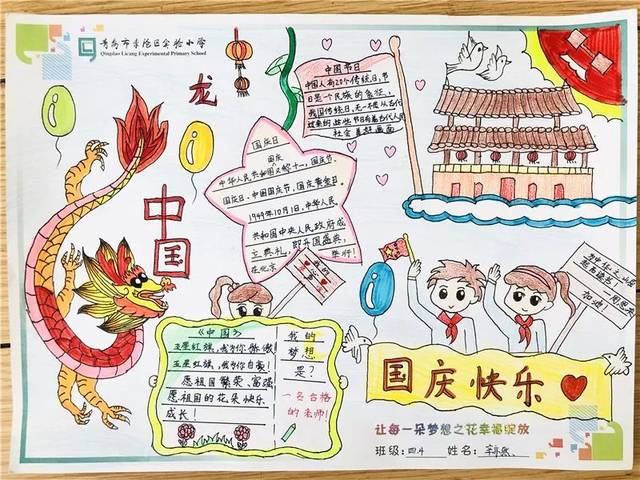 青岛市李沧区实验小学
Qingdao Licang Experimental Primary School
龙
中国
国庆日
国庆
中华人民共和国又称十一、国庆节、
国庆日、中国国庆节、国庆黄金周。
1949年10月1日,中华人民
共和国中央人民政府成
立典礼,即开国盛典,
在北京
举行!
中国节日
中国人有20个传统日,节
日是一个民族的象征,
我国传统日,无一不是从古代
过来的这些节日有着古代人民
社会
画面
我的
《中国》
五星红旗,我为你骄傲!
五星红旗,我为你自豪!
愿祖国繁荣、富强
愿祖国的花朵快乐
成长!
我的
梦想
是?
一名合格
的老师!
加油!
国庆快乐
让每一朵梦想之花幸福绽放
班级:四.4 姓名: